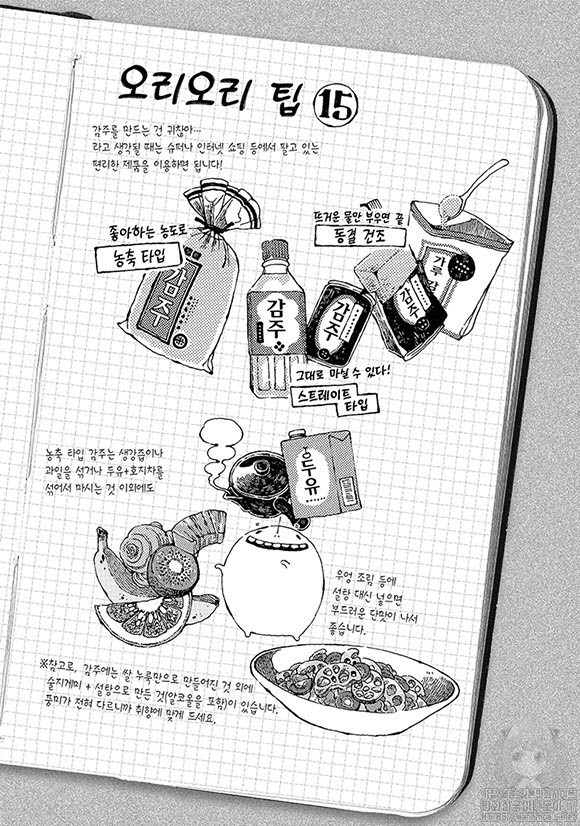 오리오리 팁 15
감주를 만드는 건 귀찮아…
라고 생각될 때는 슈퍼나 인터넷 쇼핑 등에서 팔고 있는
편리한 제품을 이용하면 됩니다!
좋아하는 농도로
농축 타입
감주
뜨거운 물만 부우면 끝
동결 건조
감주
감주
감주
가루
그대로 마실 수 있다!
스트레이트
타입
농축 타입 감주는 생강즙이나
과일을 섞거나 두유+호지차를
섞어서 마시는 것 이외에도
두유
우엉 조림 등에
설탕 대신 넣으면
부드러운 단맛이 나서
좋습니다.
※참고로, 감주에는 쌀 누룩만으로 만들어진 것 외에
술지게미 + 설탕으로 만든 것(알코올을 포함)이 있습니다.
풍미가 전혀 다르니까 취향에 맞게 드세요.